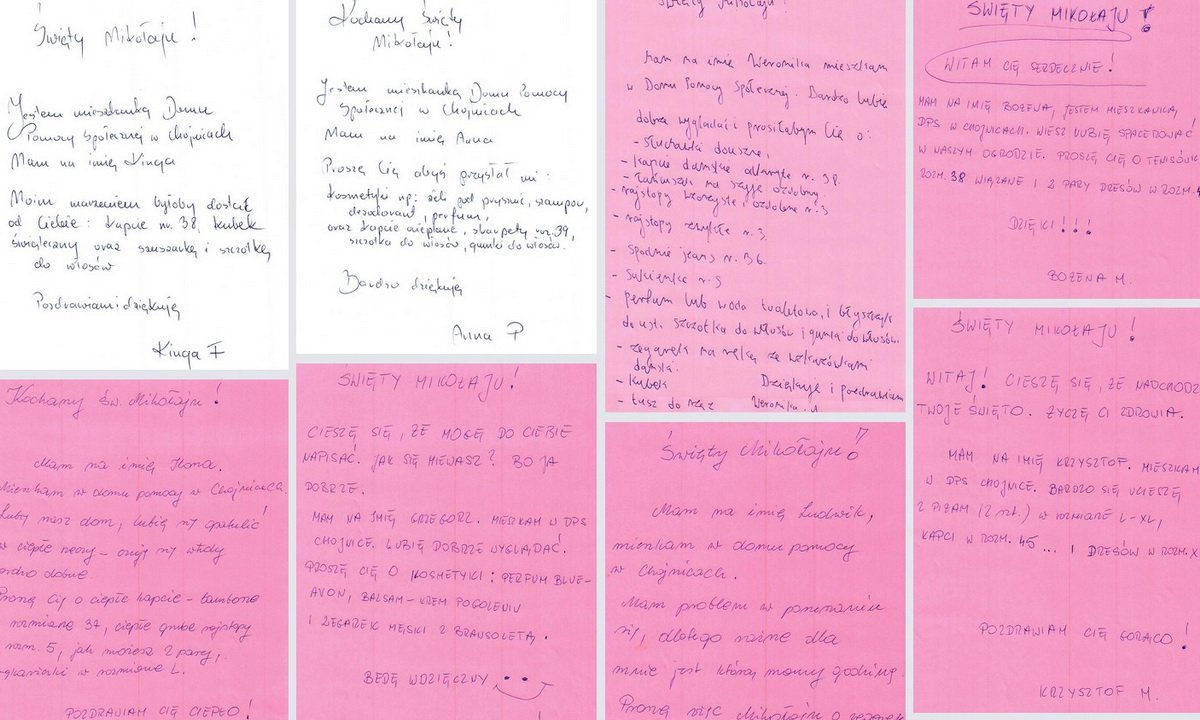 Święty Mikołaju!
Jestem mieszkanką Domu
Pomocy Społecznej w Chojnicach
Mam na imię Kinga
Moim marzeniem byłoby dostać
od Ciebie: kapcie nr. 38, kubek
świąteczny oraz suszarkę i szczotkę
do włosów
Pozdrawiam i dziękuję
Kinga F
Kochany Święty
Mikołaju!
Jestem mieszkanką Domu Pomocy
Społecznej w Chojnicach
Mam na imię Anna
Proszę Cię abyś przysłał mi:
kosmetyki np: żel pod prysznic, szampon,
dezodorant, perfum,
oraz kapcie cieplane, skarpety roz. 39,
szczotka do włosów, gumki do włosów.
Bardzo dziękuję
Anna P
Święty Mikołaju!
Mam na imię Weronika mieszkam
w Domu Pomocy Społecznej. Bardzo lubię
dobrze wyglądać i prosiłabym Cię o:
- słuchawki douszne,
- kapcie damskie odkryte nr. 38.
- łańcuszek na szyję ozdobny
- rajstopy wzorzyste, ozdobne r. 3
- rajstopy zwykłe r. 3
- spodnie jeans r. 36.
- Sukienkę r. S
- perfum lub woda toaletowa, i błyszczyk
do ust. szczotka do włosów i gumka do włosów.
- zegarek na rękę ze wskazówkami
damski.
- kubek
- tusz do rzęs
Dziękuję i pozdrawiam
Weronika. A
ŚWIĘTY MIKOŁAJU!
WITAM CIĘ SERDECZNIE!
MAM NA IMIĘ BOŻENA, JESTEM MIESZKANKĄ,
DPS W CHOJNICACH. WIESZ LUBIĘ SPACEROWAĆ
W NASZYM OGRODZIE. PROSZĘ CIĘ O TENISÓWKI
ROZM. 38 WIĄZANE I 2 PARY DRESÓW W ROZM.
DZIĘKI!!!
BOŻENA M.
Kochany Św. Mikołaju!
Mam na imię Ilona.
Mieszkam w domu pomocy w Chojnicach.
Lubię nasz dom, lubię się opatulić
w ciepłe rzeczy - czuję się wtedy
bardzo dobrze
Proszę Cię o ciepłe kapcie - bambosze
rozmiarze 37, ciepłe grube rajstopy
rozm. 5, jak możesz 2 pary,
w rozmiarze L.
POZDRAWIAM CIĘ CIEPŁO!
ŚWIĘTY MIKOŁAJU!
CIESZĘ SIĘ, ŻE MOGĘ DO CIEBIE
NAPISAĆ. JAK SIĘ MIEWASZ? BO JA
DOBRZE.
MAM NA IMIĘ GRZEGORZ. MIESZKAM W DPS
CHOJNICE. LUBIĘ DOBRZE WYGLĄDAĆ.
PROSZĘ CIĘ O KOSMETYKI: PERFUM BLUE-
AVON, BALSAM-KREM POGOLENIU
I ZEGAREK MĘSKI Z BRANSOLETĄ.
BĘDĘ WDZIĘCZNY
Święty Mikołaju!
Mam na imię Ludwik,
mieszkam w domu pomocy
w Chojnicach.
Mam problem w poruszaniu
się, dlatego ważne dla
mnie jest którą mamy godzinę.
Proszę więc Mikołaju o zegarek
ŚWIĘTY MIKOŁAJU!
WITAJ! CIESZĘ SIĘ, ŻE NADCHODZI
TWOJE ŚWIĘTO. ŻYCZĘ CI ZDROWIA.
MAM NA IMIĘ KRZYSZTOF. MIESZKAM
W DPS CHOJNICE. BARDZO SIĘ UCIESZĘ
Z PIŻAM (2 szt.) W ROZMIARZE L-XL,
KAPCI W ROZM. 45... I DRESÓW W ROZM. X
POZDRAWIAM CIĘ GORĄCO!
KRZYSZTOF M.